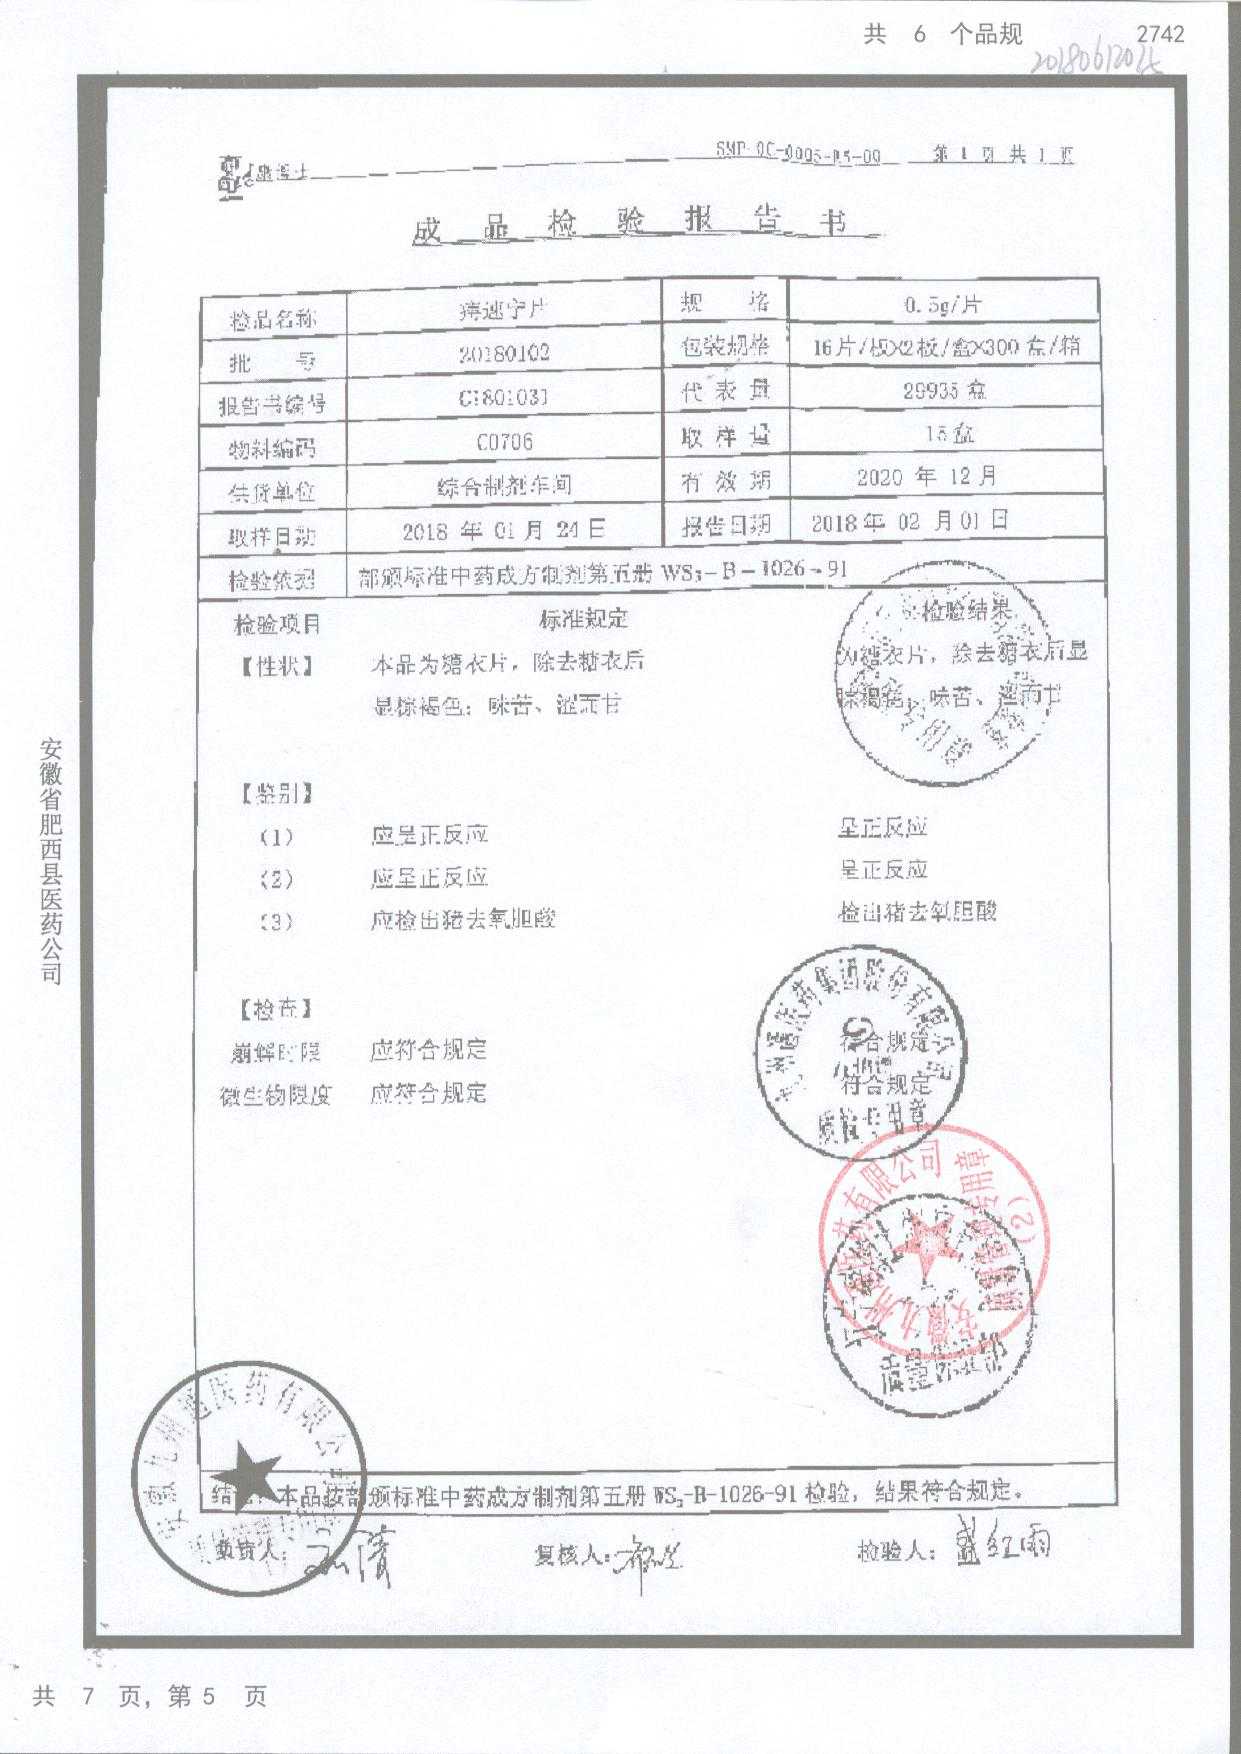 共 6 个品规 2742
2018061202
第 1 页 共 1 页
成品检验报告书
检品名称 痔速宁片 规格 0.5g/片
批号 20180102 包装规格 16片/板X2板/盒X300盒/箱
报告书编号 C1801031 代表量 29935盒
物料编码 C0706 取样量 15盒
供货单位 综合制剂车间 有效期 2020 年 12 月
取样日期 2018 年 01 月 24 日 报告日期 2018 年 02 月 01 日
检验依据 部颁标准中药成方制剂第五册 WS₃-B-1026-91
检验项目 标准规定 检验结果
【性状】 本品为糖衣片，除去糖衣后 为糖衣片，除去糖衣后显
显棕褐色；味苦、涩而甘 棕褐色；味苦、涩而甘
【鉴别】
(1) 应呈正反应 呈正反应
(2) 应呈正反应 呈正反应
(3) 应检出猪去氧胆酸 检出猪去氧胆酸
【检查】
崩解时限 应符合规定 符合规定
微生物限度 应符合规定 符合规定
九州通医药集团股份有限公司
质检专用章
安徽九州通医药有限公司
(2)
安徽九州通医药有限公司
结论：本品按部颁标准中药成方制剂第五册 WS₃-B-1026-91 检验，结果符合规定。
负责人： 复核人： 检验人：盛红雨
安徽省肥西县医药公司
共 7 页，第 5 页